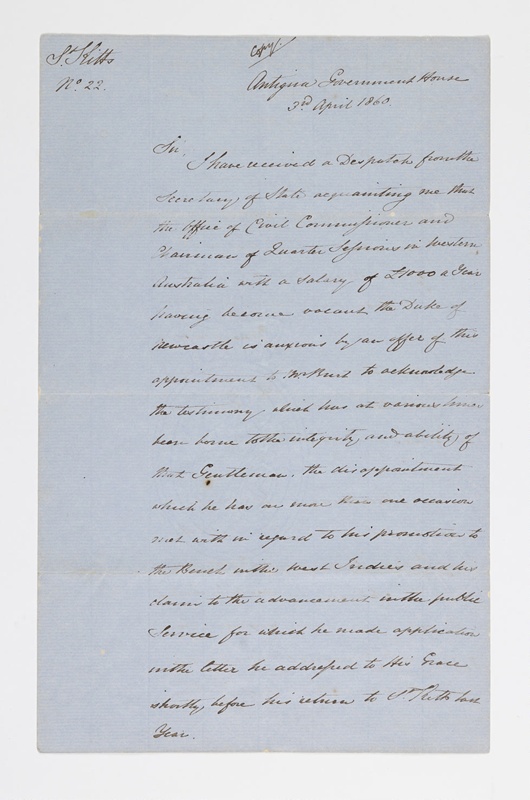 Copy/.
St. Kitts
No. 22.
Antigua Government House
3rd April 1860.
Sir,
I have received a Despatch from the
Secretary of State acquainting me that
the Office of Civil Commissioner and
Chairman of Quarter Sessions in Western
Australia with a Salary of £1000 a Year
having become vacant the Duke of
Newcastle is anxious by an offer of this
appointment to Mr Burt to acknowledge
the testimony which has at various times
been borne to the integrity and ability of
that Gentleman. the disappointment
which he has on more than one occasion
met with in regard to his promotion to
the Bench in the West Indies and his
claim to the advancement in the public
Service for which he made application
in the letter he addressed to His Grace
shortly before his return to St. Kitts last
Year.